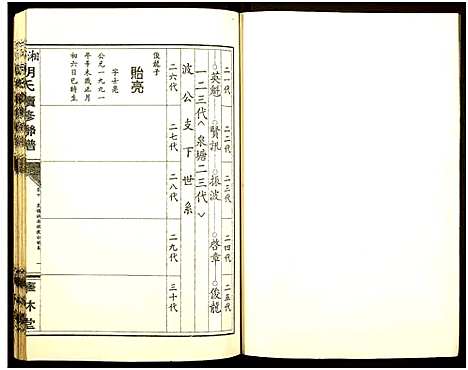 二一代
二二代
二三代
二四代
二五代
英魁——○賢訊——○振波——○啓章——○俊龍
一二三代︿泉塘二三代﹀
波公支下世系
二六代
二七代
二八代
二九代
三十代
俊龍子
貽亮
字士亮
公元一九九一
年辛未歲正月
初六日巳時生
湘陰明氏續修聯譜